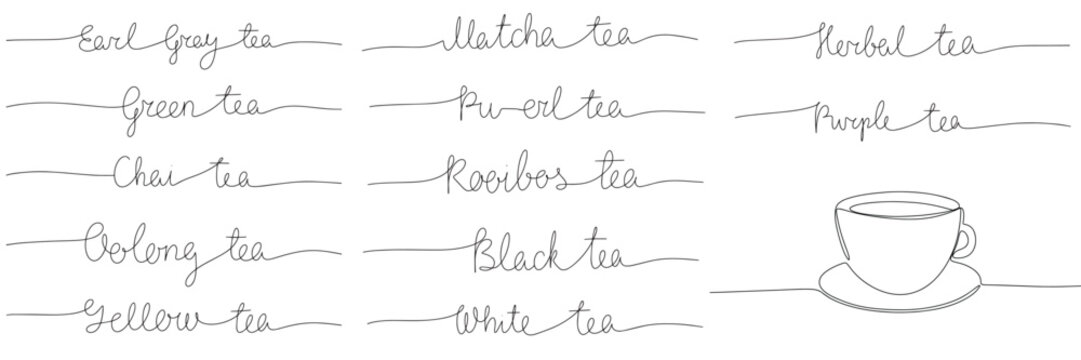 Earl Gray tea
Green tea
Chai tea
Oolong tea
Yellow tea
Matcha tea
Pu-erl tea
Rooibos tea
Black tea
White tea
Herbal tea
Purple tea